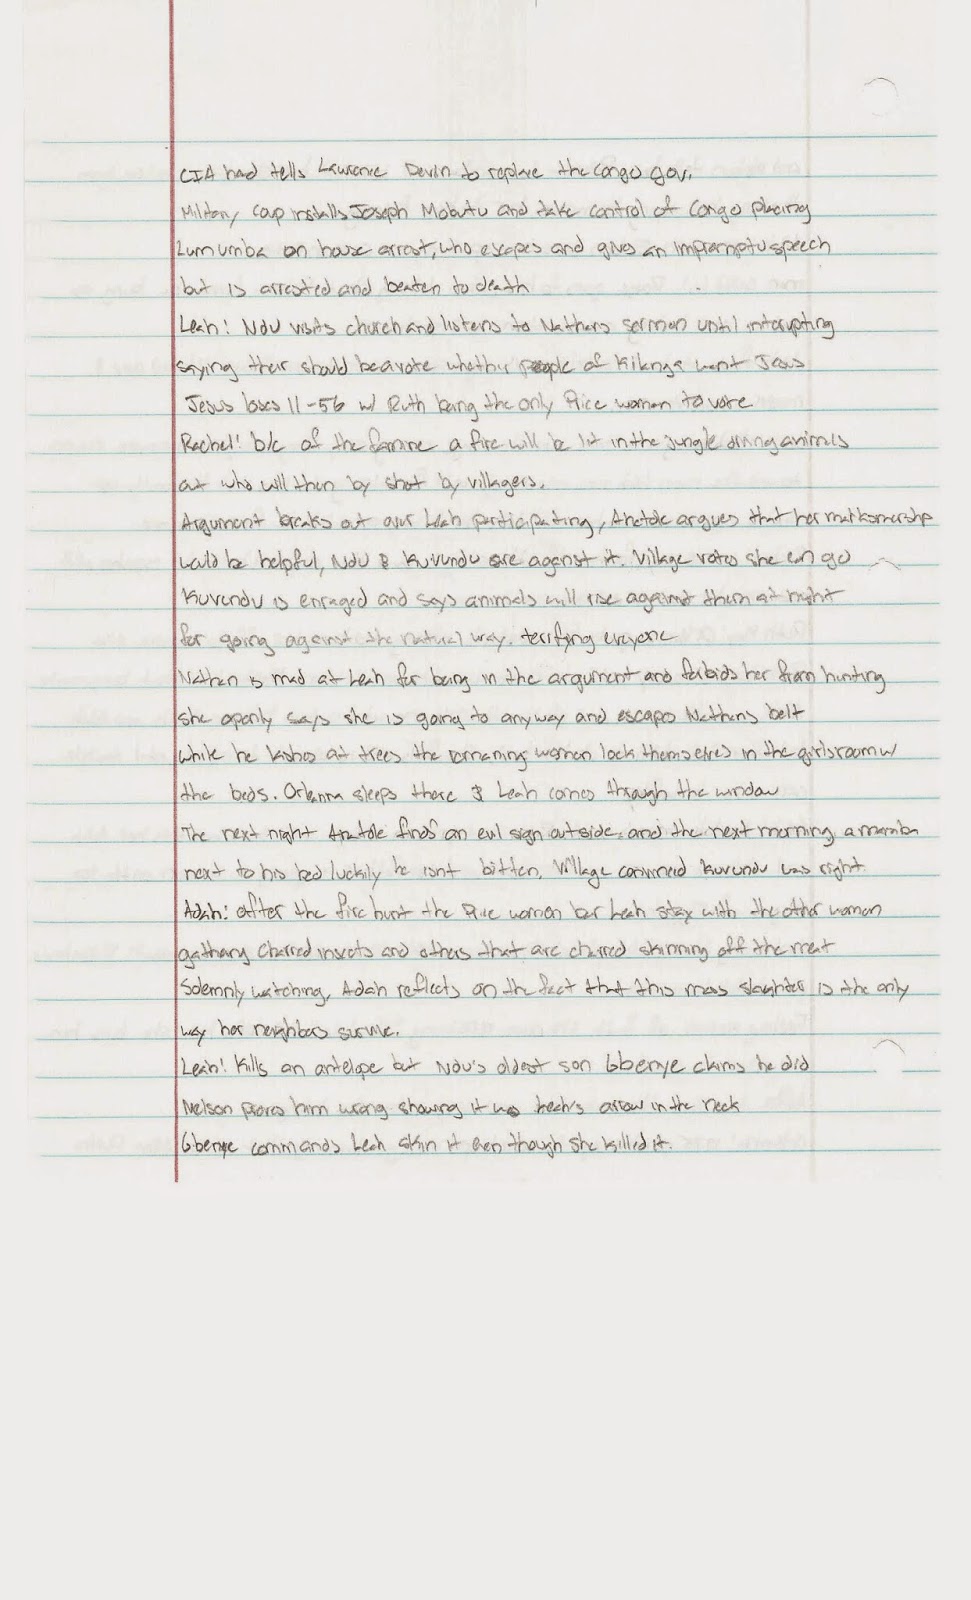 CIA had tells Lawrence Devlin to replace the Congo gov.
Military coup installs Joseph Mobutu and take control of Congo placing
Lumumba on house arrest, who escapes and gives an impromptu speech
but is arrested and beaten to death
Leah: Ndu visits church and listens to Nathans sermon until interupting
saying their should be a vote whether people of Kilanga want Jesus
Jesus loses 11-56 w/ Ruth being the only Price woman to vote
Rachel: b/c of the famine a fire will be lit in the jungle driving animals
out who will then by shot by villagers.
Argument breaks out over Leah participating, Anatole argues that her marksmanship
would be helpful, Ndu & Kuvundu are against it. Village votes she can go
Kuvundu is enraged and says animals will rise against them at night
for going against the natural way. terrifying everyone
Nathan is mad at Leah for being in the argument and forbids her from hunting
she openly says she is going to anyway and escapes Nathans belt
while he lashes at trees the remaining women lock themselves in the girls room w/
the beds. Orleanna sleeps there & Leah comes through the window
The next night Anatole finds an evil sign outside. and the next morning a mamba
next to his bed luckily he isnt bitten. Village convinced Kuvundu was right.
Adah: after the fire hunt the Price women bar Leah stay with the other women
gathering charred insects and others that are charred skinning off the meat
Solemnly watching, Adah reflects on the fact that this mass slaughter is the only
way her neighbors survive.
Leah: Kills an antelope but Ndu's oldest son Gbenye claims he did
Nelson proves him wrong showing it was Leah's arrow in the neck
Gbenye commands Leah skin it even though she killed it.